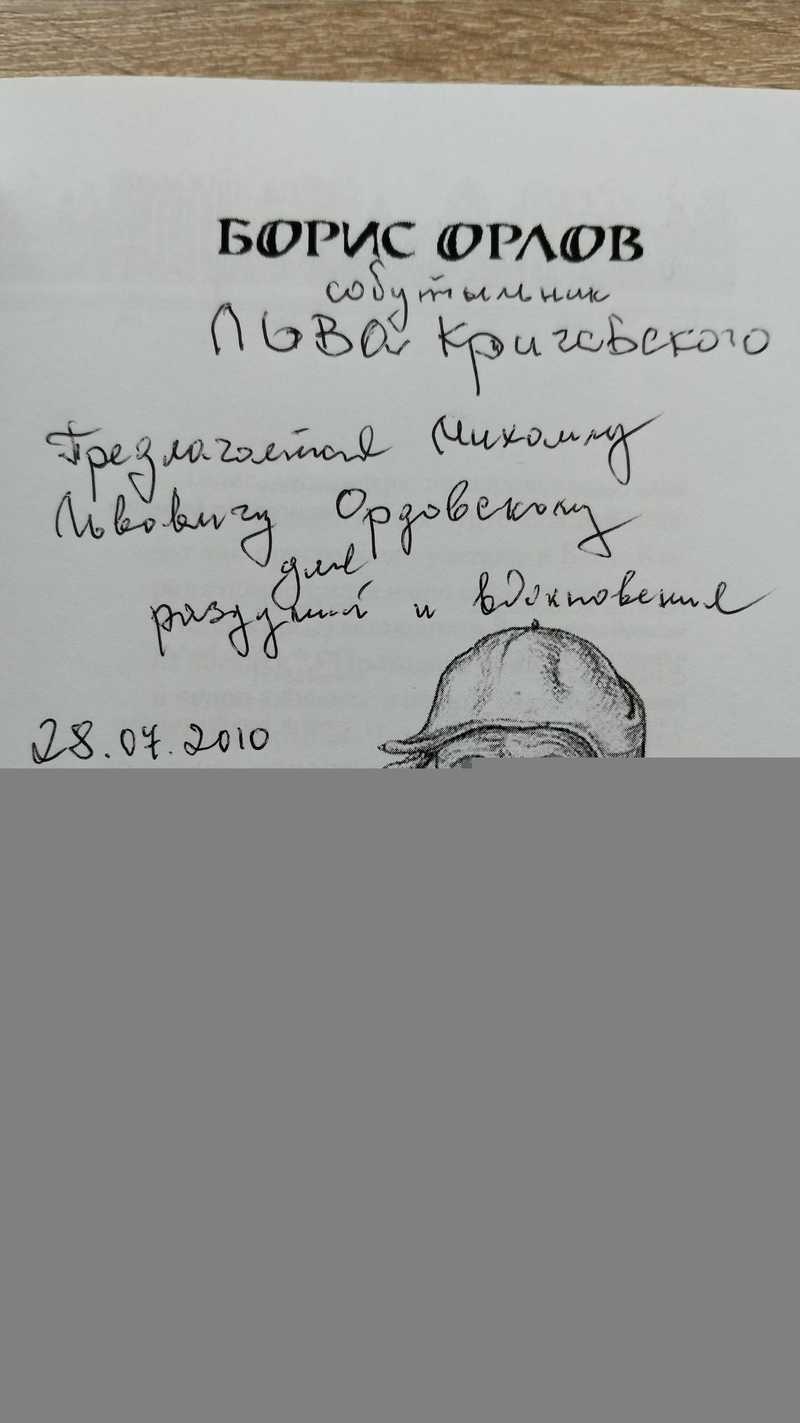 БОРИС ОРЛОВ
собутыльник
Льва Кричевского
Предлагается Михаилу
Львовичу Ордовскому
для
раздумий и вдохновения
28.07.2010